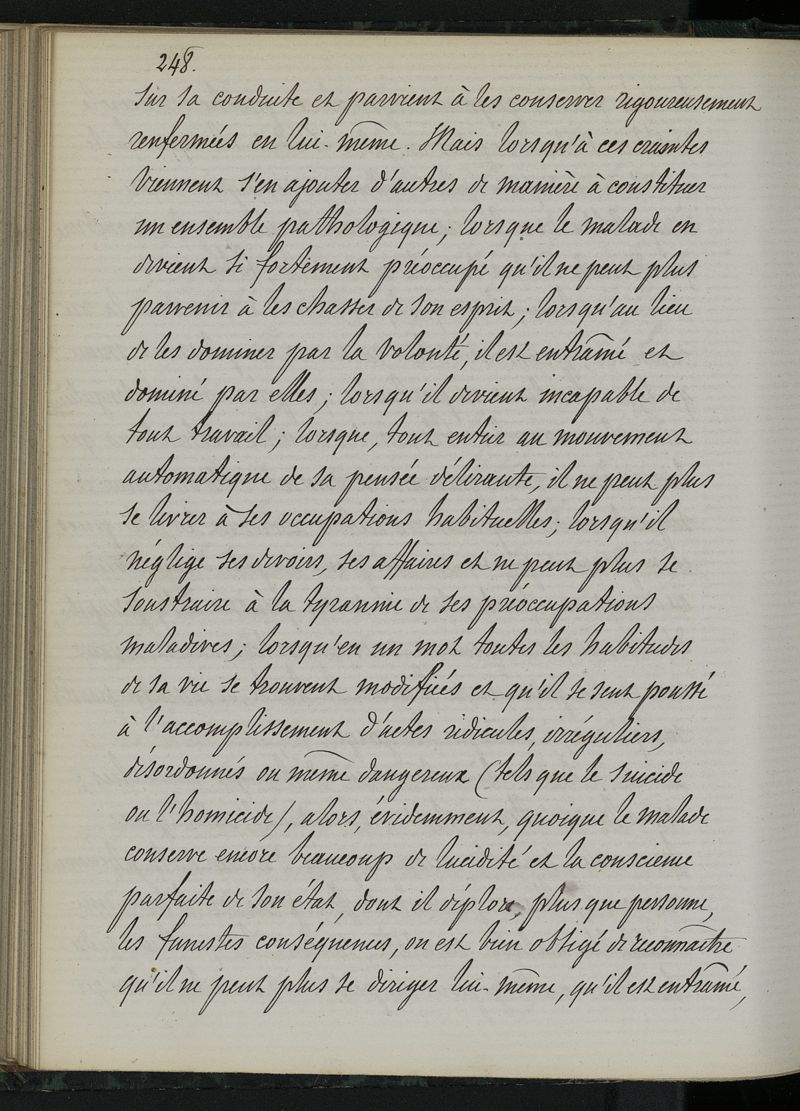 248.
sur sa conduite et parvient à les conserver rigoureusement
renfermées en lui-même. Mais lorsqu'à ces craintes
viennent s'en ajouter d'autres de manière à constituer
un ensemble pathologique; lorsque le malade en
devient si fortement préoccupé qu'il ne peut plus
parvenir à les chasser de son esprit; lorsqu'au lieu
de les dominer par la volonté, il est entraîné et
dominé par elles; lorsqu'il devient incapable de
tout travail; lorsque, tout entier au mouvement
automatique de sa pensée délirante, il ne peut plus
se livrer à ses occupations habituelles; lorsqu'il
néglige ses devoirs, ses affaires et ne peut plus se
soustraire à la tyrannie de ses préoccupations
maladives; lorsqu'en un mot toutes les habitudes
de sa vie se trouvent modifiées et qu'il se sent poussé
à l'accomplissement d'actes ridicules, irréguliers,
désordonnés ou même dangereux (tels que le suicide
ou l'homicide), alors, évidemment, quoique le malade
conserve encore beaucoup de lucidité et la conscience
parfaite de son état, dont il déplore, plus que personne,
les funestes conséquences, on est bien obligé de reconnaître
qu'il ne peut plus se diriger lui-même, qu'il est entraîné,